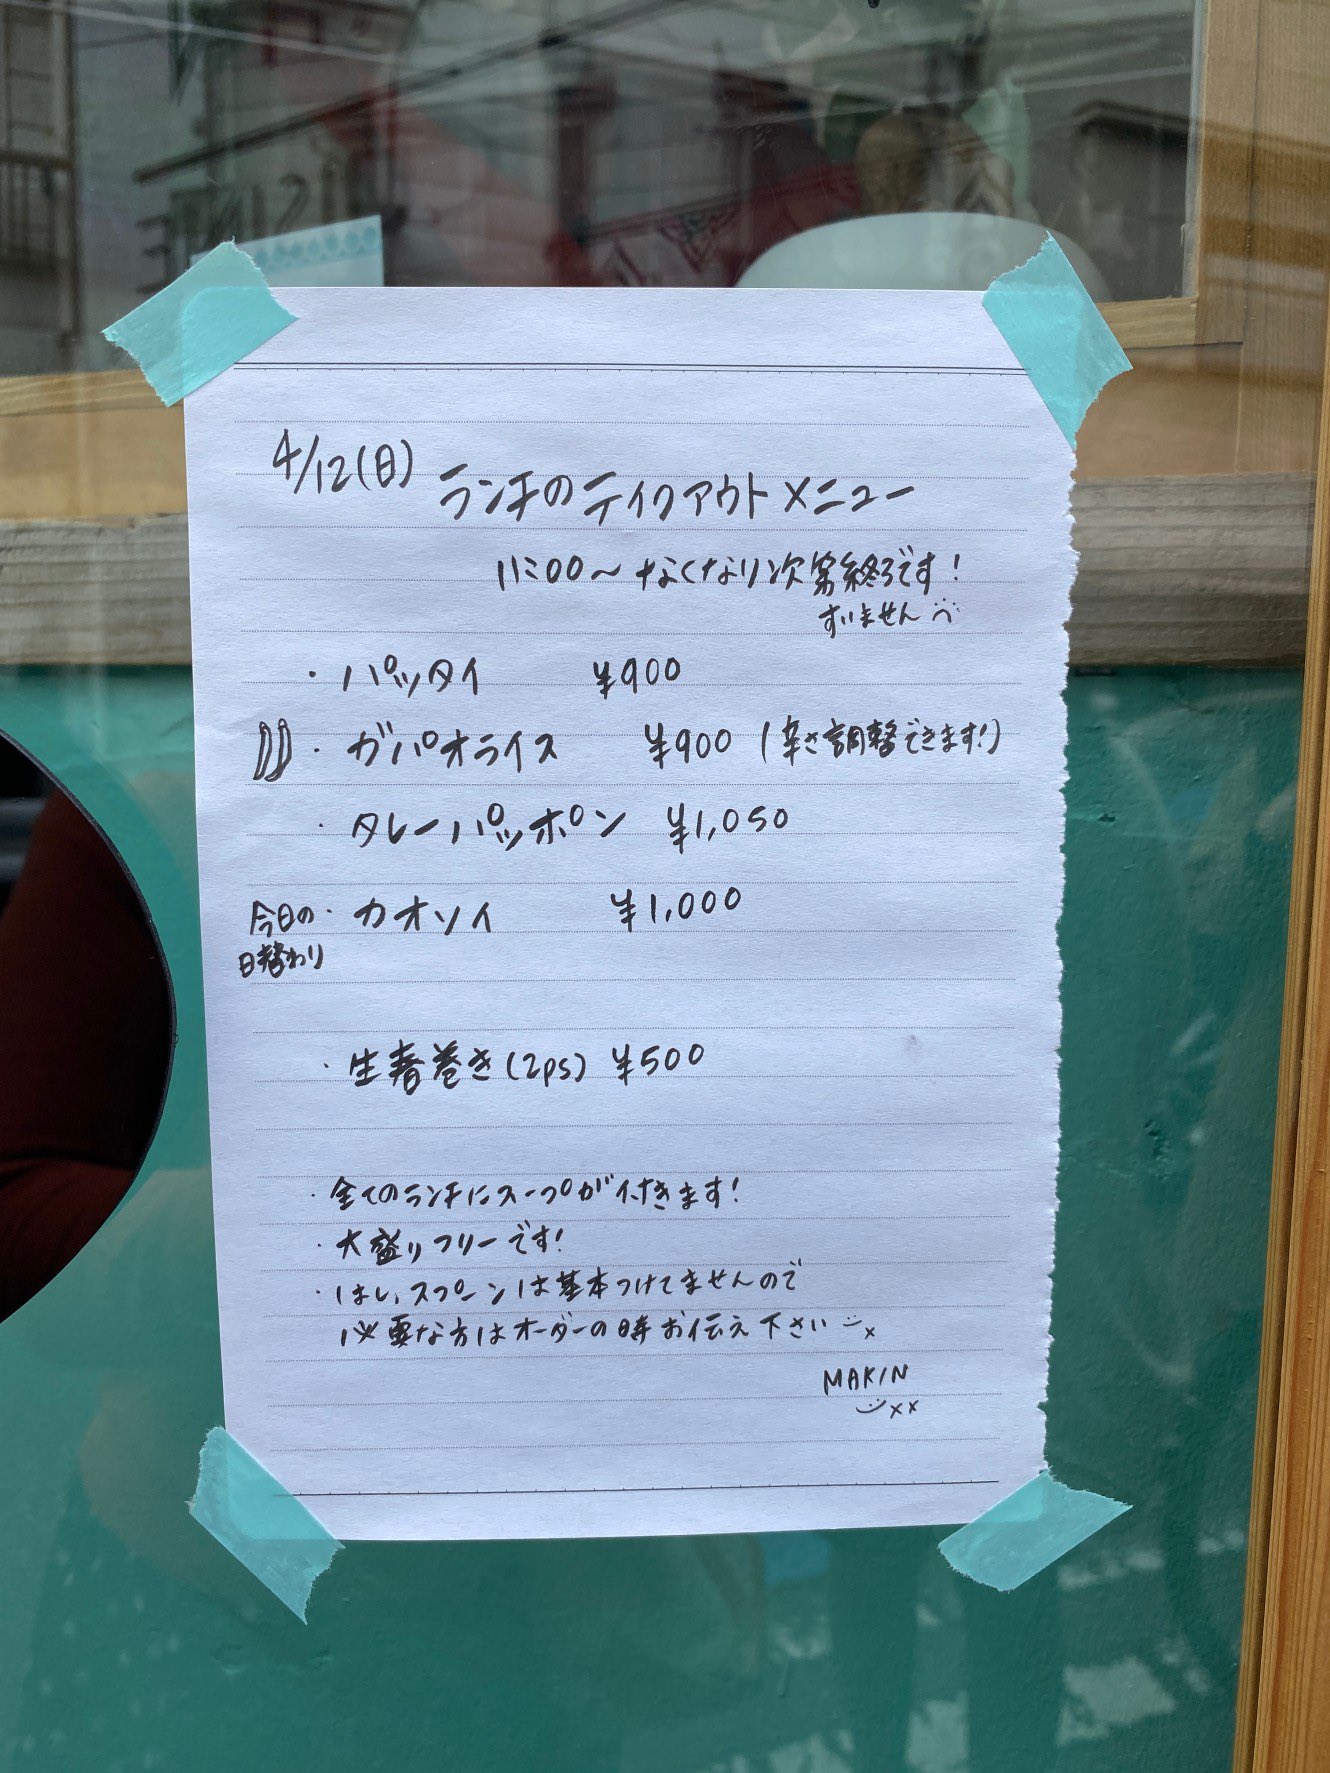 4/12(日) ランチのテイクアウトメニュー
11:00〜なくなり次第終了です!
すいません
・パッタイ ¥900
・ガパオライス ¥900 (辛さ調整できます!)
・タレーパッポン ¥1,050
今日の日替わり・カオソイ ¥1,000
・生春巻き(2ps) ¥500
・全てのランチにスープが付きます!
・大盛りフリーです!
・はし、スプーンは基本つけてませんので
必要な方はオーダーの時お伝え下さい x
MAKIN
xx